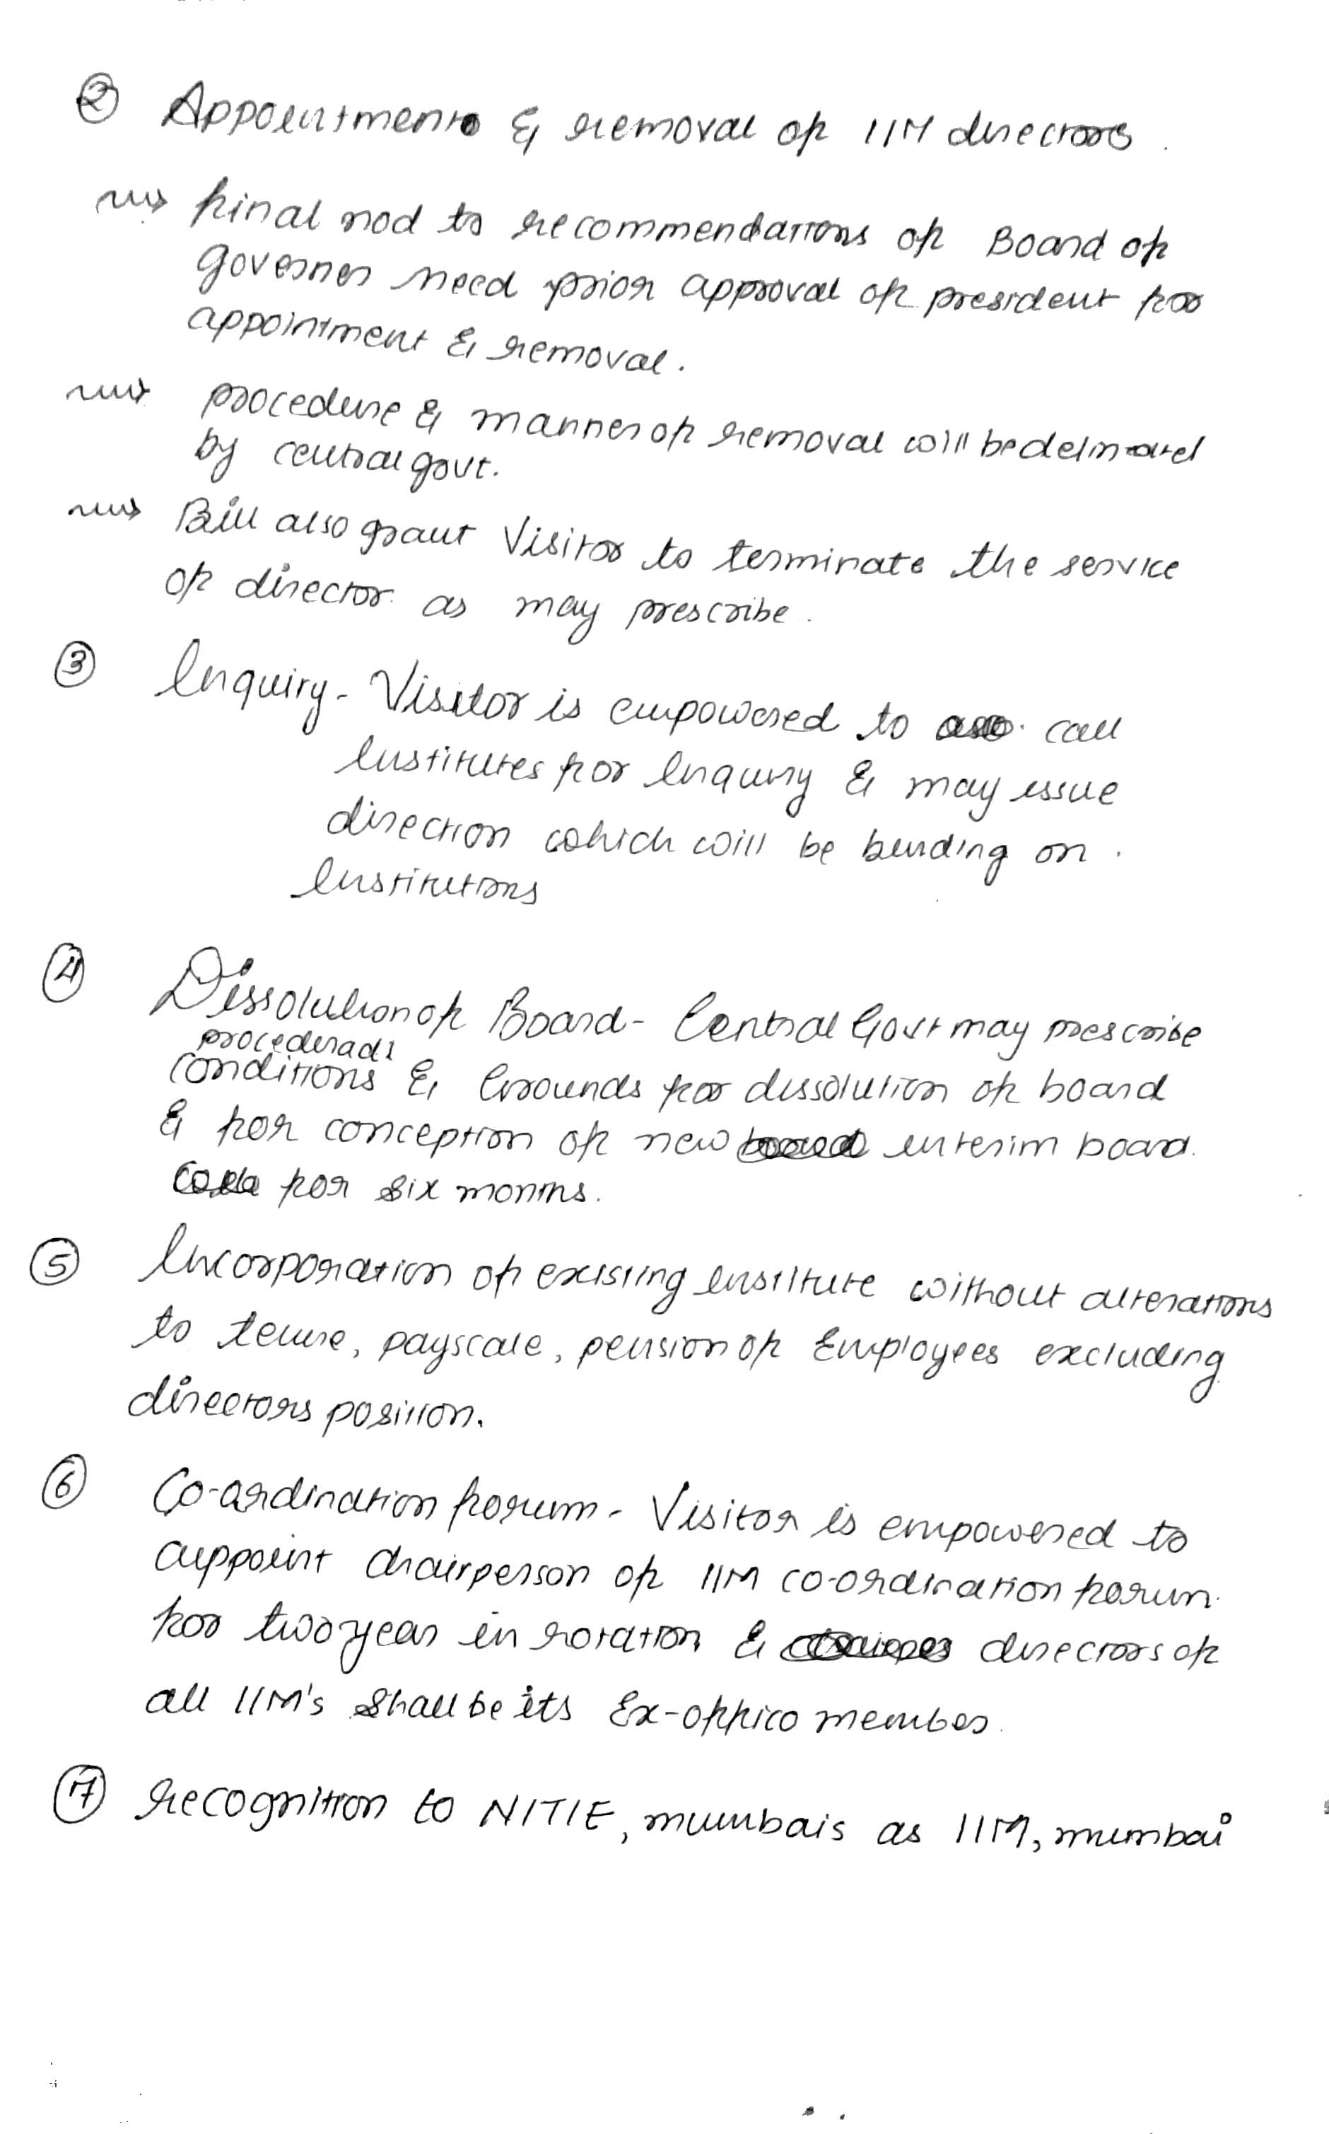 ② Appointment & removal of IIM directors.
⇝ final nod to recommendations of Board of
governer need prior approval of president for
appointment & removal.
⇝ procedure & manner of removal will be
by central govt.
⇝ Bill also grant Visitor to terminate the service
of director as may prescribe.
③ Inquiry - Visitor is empowered to call
Institutes for Inquiry & may issue
direction which will be binding on.
Institutions
④ Dissolution of Board - Central Govt may prescribe
conditions & Grounds for dissolution of board
& for conception of new interim board.
for six months.
⑤ Incorporation of existing institute without alterations
to tenure, payscale, pension of Employees excluding
directors position.
⑥ Co-ordination forum - Visitor is empowered to
appoint chairperson of IIM co-ordination forum.
for two year in rotation & directors of
all IIM's shall be its Ex-offico member.
⑦ recognition to NITIE, mumbais as IIM, mumbai